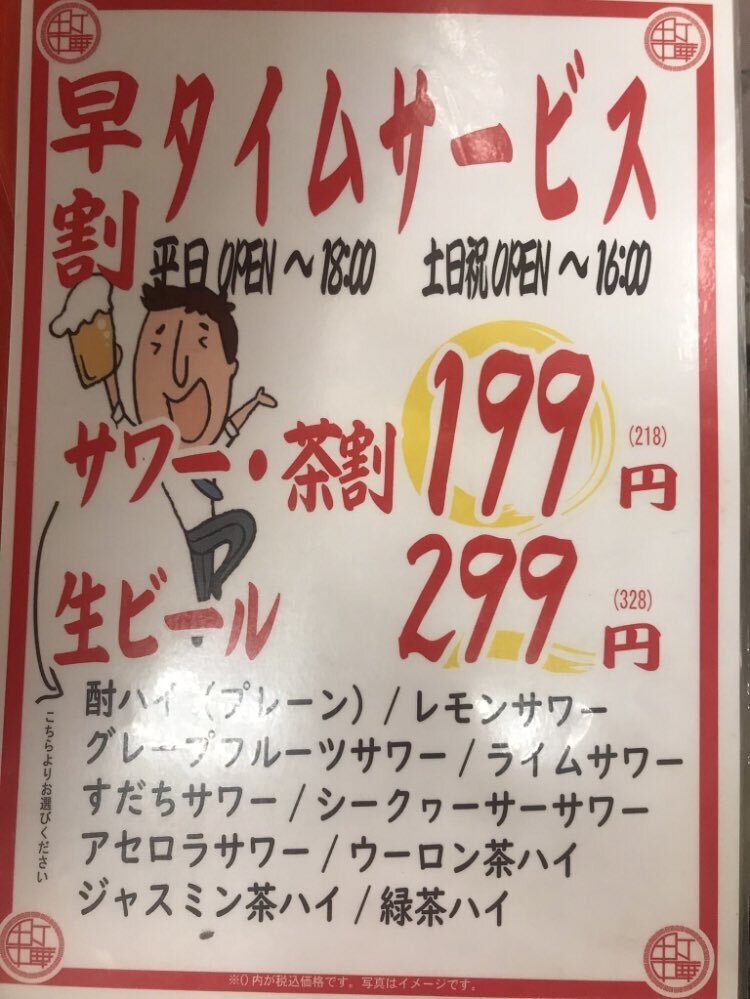 早割
タイムサービス
平日OPEN～18:00 土日祝OPEN～16:00
サワー・茶割 199円 (218)
生ビール 299円 (328)
こちらよりお選びください
酎ハイ（プレーン）/レモンサワー
グレープフルーツサワー/ライムサワー
すだちサワー/シークヮーサーサワー
アセロラサワー/ウーロン茶ハイ
ジャスミン茶ハイ/緑茶ハイ
※()内が税込価格です。写真はイメージです。